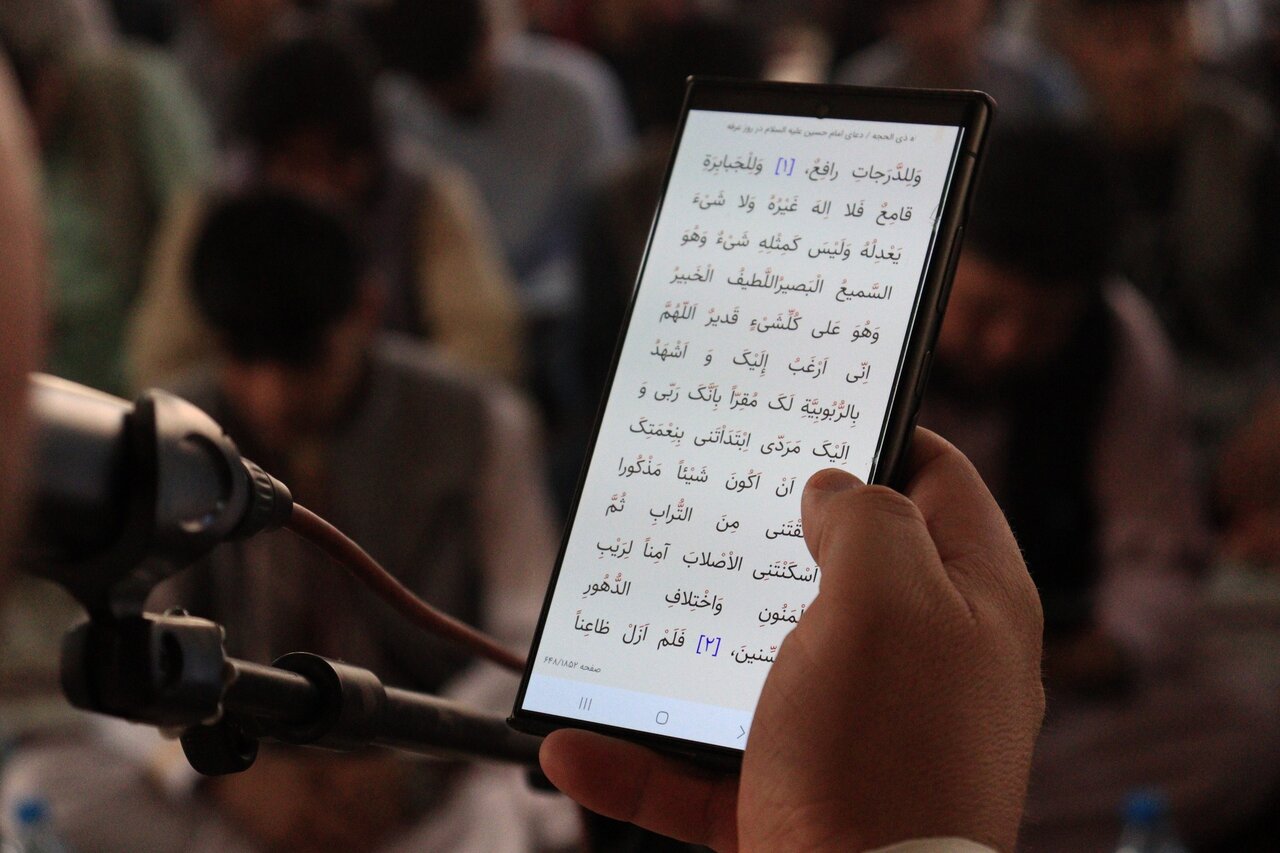 ذی الحجه / دعای امام حسین علیه السلام در روز عرفه
وَلِلدَّرَجاتِ رافِعٌ، [۱] وَلِلْجَبابِرَةِ
قامِعٌ فَلا اِلهَ غَیْرُهُ وَلا شَیْءَ
یَعْدِلُهُ وَلَیْسَ کَمِثْلِهِ شَیْءٌ وَهُوَ
السَّمیعُ الْبَصیرُاللَّطیفُ الْخَبیرُ
وَهُوَ عَلی کُلِّشَیْءٍ قَدیرٌ اَللّهُمَّ
اِنّی اَرْغَبُ إِلَیْکَ وَ اَشْهَدُ
بِالرُّبُوبِیَّةِ لَکَ مُقِرّاً بِاَنَّکَ رَبّی وَ
اِلَیْکَ مَرَدّی اِبْتَدَاْتَنی بِنِعْمَتِکَ
اَنْ اَکُونَ شَیْئاً مَذْکُورا
مِنَ التُّرابِ ثُمَّ
اَسْکَنْتَنِی الاْصْلابَ آمِناً لِرَیْبِ
وَاخْتِلافِ الدُّهُورِ
[۲] فَلَمْ اَزَلْ ظاعِناً
صفحه ۶۴۸/۱۸۵۲